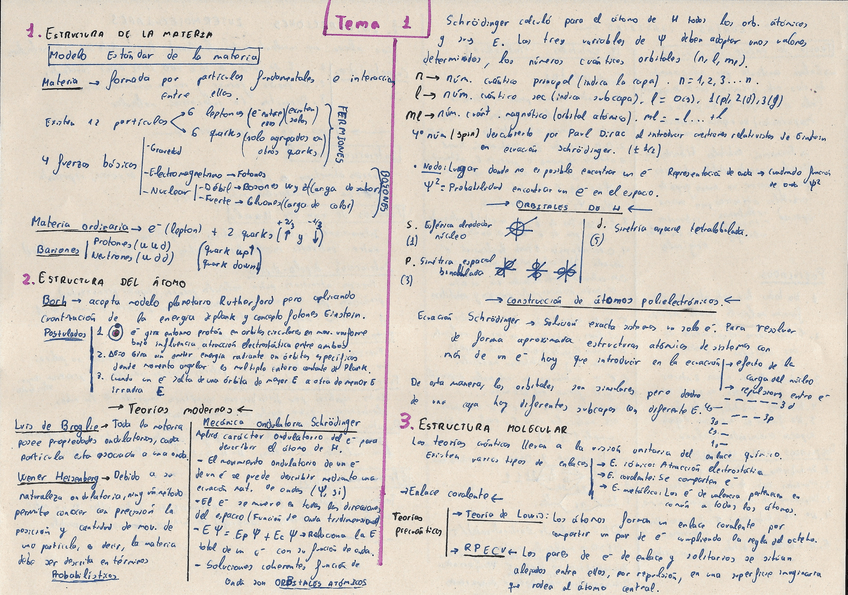 Tema 1
1. ESTRUCTURA DE LA MATERIA
Modelo Estándar de la materia
Materia → formada por partículas fundamentales o interacción
entre ellos.
Existen 12 partículos
6 leptones
6 quarks (solo agrupados con
otros quarks)
FERMIONES
4 fuerzas básicas
- Gravedad
- Electromagnetismo → Fotones
- Nuclear
- Débil → Bosones W y Z (carga de sabor)
- Fuerte → Gluones (carga de color)
BOSONES
Materia ordinaria → e⁻ (lepton) + 2 quarks (↑ y ↓)
+2/3 -1/3
Bariones
Protones (u u d)
Neutrones (u d d)
(quark up ↑
quark down ↓)
2. ESTRUCTURA DEL ÁTOMO
Bohr → acepta modelo planetario Rutherford pero aplicando
cuantización de la energía Plank y concepto fotones Einstein.
Postulados
1. e⁻ gira entorno protón en orbitas circulares en mov. uniforme
bajo influencia atracción electrostática entre ambos
2. gira sin emitir energía radiante en órbitas específicas
donde momento angular es multiplo entero constante de Plank.
3. Cuando un e⁻ salta de una órbita de mayor E a otra de menor E
irradia E.
→ Teorías modernas ←
Luis de Broglie → Toda la materia
posee propiedades ondulatorias, cada
partícula esta asociada a una onda.
Wener Heisenberg → Debido a su
naturaleza ondulatoria, ningún método
permite conocer con precisión la
posición y cantidad de mov. de
una partícula, es decir, la materia
debe ser descrita en términos
Probabilísticos
Mecánica ondulatoria Schrödinger
Aplicó carácter ondulatorio del e⁻ para
describir el átomo de H.
- El movimiento ondulatorio de un e⁻
de un é se puede describir mediante una
ecuación mat. de ondas (Ψ, si)
- El e⁻ se mueve en todas las direcciones
del espacio (Función de onda tridimensional)
- EΨ = EpΨ + EcΨ → relaciona la E
total de un e⁻ con su función de onda.
- Soluciones coherentes función de
onda son ORBITALES ATÓMICOS
Schrödinger calculó para el átomo de H todos los orb. atómicos
y sus E. Las tres variables de Ψ deben adoptar unos valores
determinados, los números cuánticos orbitales (n, l, ml).
n → núm. cuántico principal (indica la capa). n = 1, 2, 3... n.
l → núm. cuántico sec (indica subcapa). l = 0(s), 1(p), 2(d), 3(f)
ml → núm. cuánt. magnético (orbital atómico). ml = -l ... +l
4º núm (spin) descubierto por Paul Dirac al introducir cuestiones relativistas de Einstein
en ecuación Schrödinger. (± 1/2)
• Nodo: Lugar donde no es posible encontrar un e⁻
Representación de onda → cuadrado función
de onda Ψ²
Ψ² = Probabilidad encontrar un e⁻ en el espacio.
→ ORBITALES DE H ←
S. Esférica alrededor
(1) núcleo
d. Simetría espacial tetralobulada.
(5)
P. Simétria espacial
(3) binobulada
→ Construcción de átomos polielectrónicos. ←
Ecuación Schrödinger → Solución exacta sistemas un solo e⁻. Para resolver
de forma aproximada estructuras atómicas de sistemas con
más de un e⁻ hay que introducir en la ecuación
→ efecto de la
carga del núcleo
→ repulsiones entre e⁻
De esta manera, los orbitales son similares pero dentro
de una capa hay diferentes subcapas con diferente E.
4s
3d
3p
3s
3. ESTRUCTURA MOLECULAR
Las teorías cuánticas llevan a la visión unitaria del enlace químico.
Existen varios tipos de enlaces
→ E. iónico: Atracción electrostática
→ E. covalente: Se comparten e⁻
→ E. metálico: Los e⁻ de valencia pertenecen en
común a todos los átomos.
→ Enlace covalente ←
Teorías
precuánticas
→ Teoría de Lewis: Los átomos forman un enlace covalente por
compartir un par de e⁻ cumpliendo la regla del octeto.
→ RPECV ← Los pares de e⁻ de enlace y solitarios se sitúan
alejados entre ellos, por repulsión, en una superficie imaginaria
que rodea el átomo central.